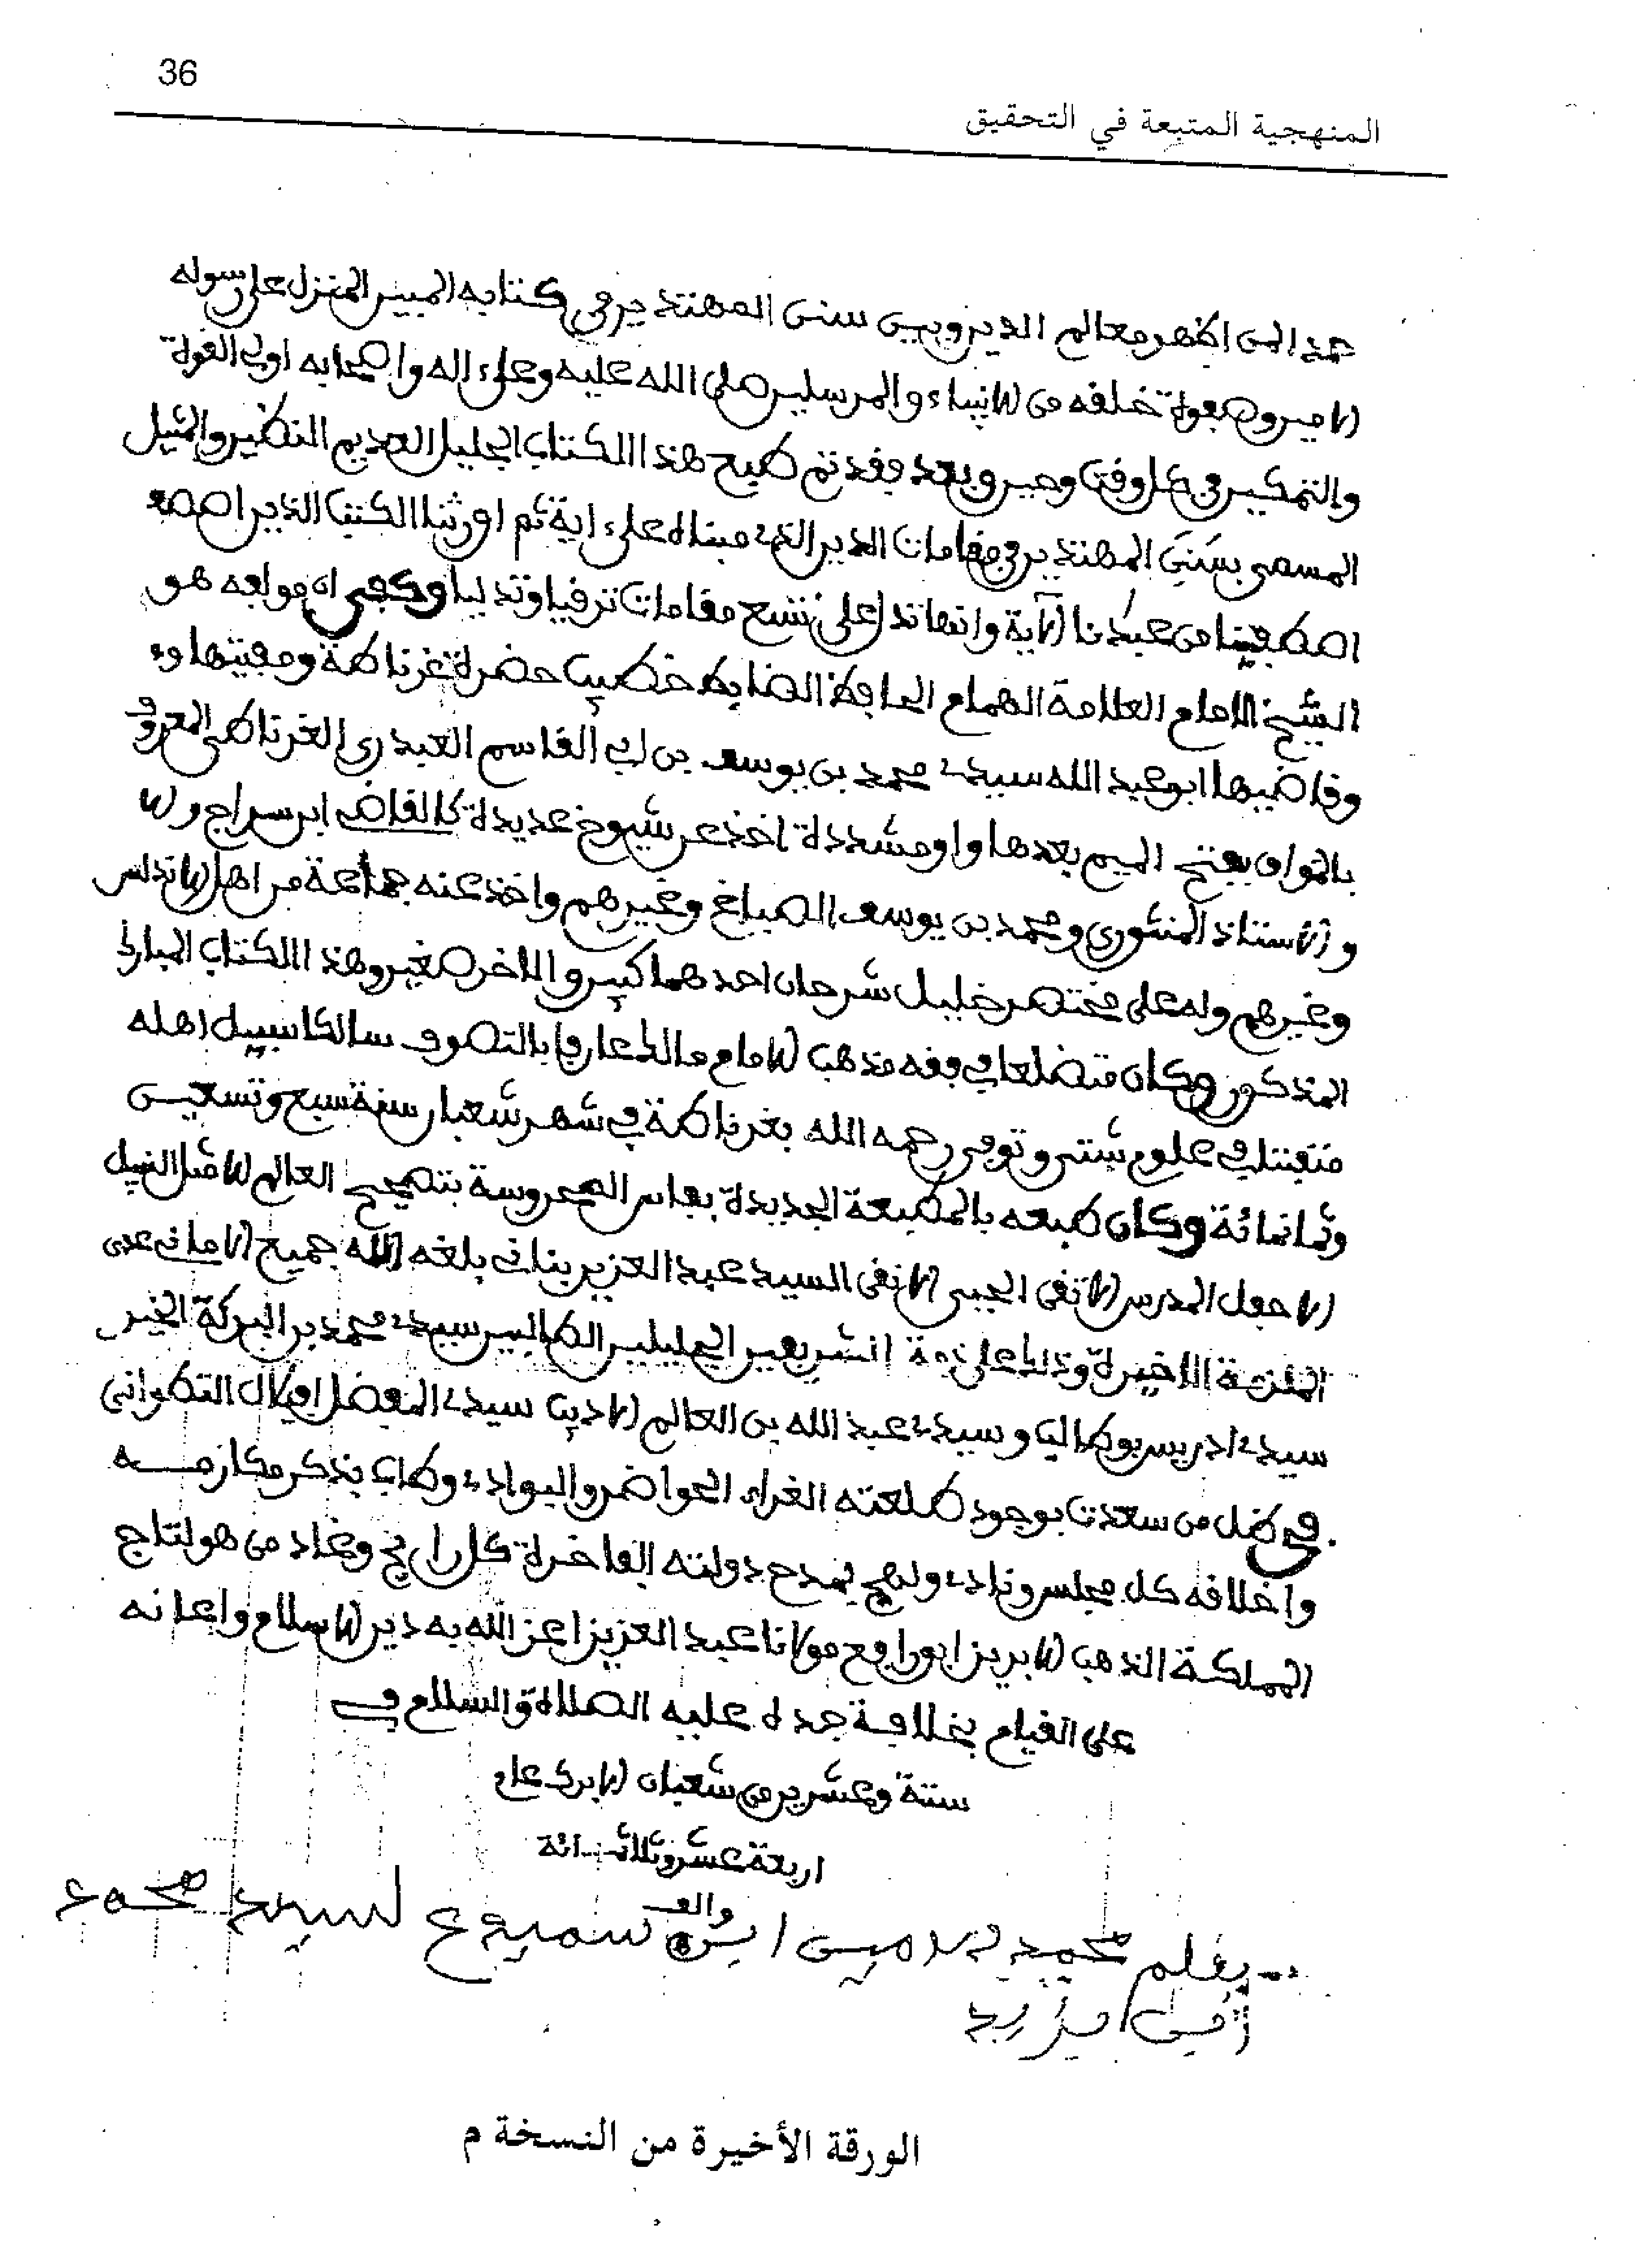 36
المنهجية المتبعة في التحقيق
حمدا لمن اظهر معالم الدين وبين سنن المهتدين في كتابه المبين المنزل على رسوله
الامين وصفوة خلفه من الانبياء والمرسلين صلى الله عليه وعلى اله واصحابه اولى القوة
والتمكين في كل وقت وحين وبعد فقد تم طبع هذا الكتاب الجليل العديم النظير والمثيل
المسمى بسنن المهتدين في مقامات الدين الذي مبناه على اية ثم اورثنا الكتب الذين اصـ
اصطفينا من عبادنا الاية وانها تدل على تسع مقامات ترقيا وتدليا وكفى ان مولفه هو
الشيخ الامام العلامة الهمام الحافظ الضابط خطيب حضرة غرناطة ومفتيها و
وقاضيها ابو عبد الله سيدي محمد بن يوسف بن ابي القاسم العبدري الغرناطي المعروف
بالمواق بفتح الميم بعدها واو مشددة اخذ عن شيوخ عديدة كالقاضي ابن سراج ولا
والاستاذ المنتوري ومحمد بن يوسف الصباغ وغيرهم واخذ عنه جماعة من اهل الاندلس
وغيرهم وله على مختصر خليل شرحان احدهما كبير والاخر صغير وهذا الكتاب المبارك
المذكور وكان متضلعا في فقه مذهب الامام مالك عارفا بالتصوف سالكا سبيل اهله
متفننا في علوم شتى وتوفي رحمه الله بغرناطة في شهر شعبان سنة سبع وتسعين
وثمانمائة وكان طبعه بالمطبعة الجديدة بفاس المحروسة بتصحيح العالم الافضل النبيل
الاحفل المدرس الاتقى المحبى الانقى السيد عبد العزيز بناني بلغه الله جميع الاماني عدى
الملزمة الاخيرة وذلك على ذمة الشريفين الجليلين الطالبين سيدي محمد بن البركة الخير
سيدي ادريس بوطالب وسيدي عبد الله بن العالم الاديب سيدي المفضل افيلال التطواني
في ظل من سعدت بوجود طلعته الغراء الحواضر والبوادي وطاب بذكر مكارمـه
واخلافه كل مجلس ونادي ولهج بمدح دولته الفاخرة كل رايح وغاد من هو لتاج
المملكة الذهب الابريز ابو رافع مولانا عبد العزيز اعز الله به دين الاسلام واعانه
على القيام بخلافة جده عليه الصلاة والسلام في
ستة وعشرين من شعبان الابرك عام
اربعة عشر وثلاثـمائة
والف
بقلم محمد الامين ابن سميدع لسيد محمد